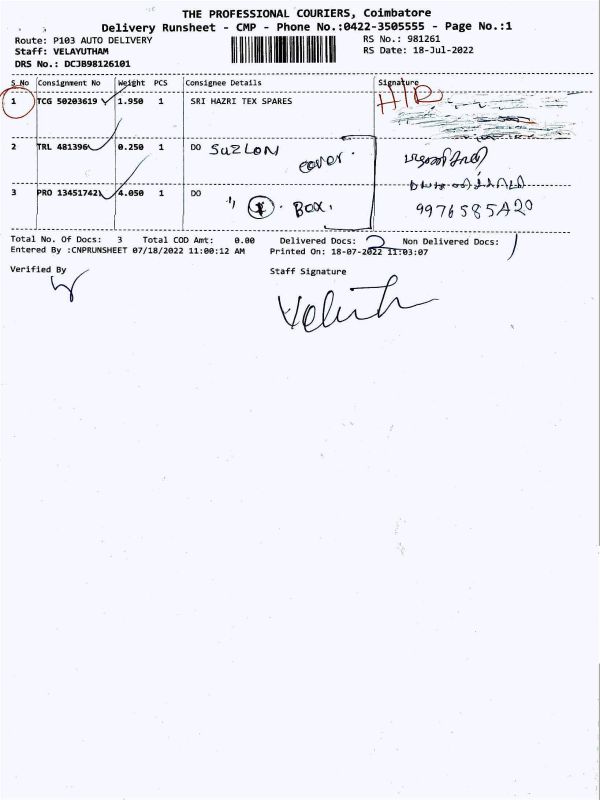 THE PROFESSIONAL COURIERS, Coimbatore
Delivery Runsheet - CMP - Phone No.:0422-3505555 - Page No.:1
Route: P103 AUTO DELIVERY RS No.: 981261
Staff: VELAYUTHAM RS Date: 18-Jul-2022
DRS No.: DCJB98126101
S_No Consignment No Weight PCS Consignee Details Signature
1 TCG 50203619 1.950 1 SRI HAZRI TEX SPARES H/R
2 TRL 481396 0.250 1 DO SUZLON cover.
3 PRO 13451742 4.050 1 DO " Box.
Total No. Of Docs: 3 Total COD Amt: 0.00 Delivered Docs: 2 Non Delivered Docs: 1
Entered By :CNPRUNSHEET 07/18/2022 11:00:12 AM Printed On: 18-07-2022 11:03:07
Verified By Staff Signature